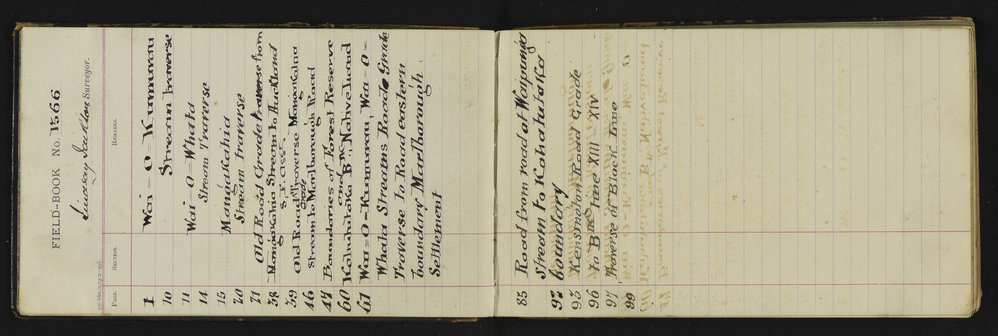 FIELD-BOOK No. 1566
Lindsay Jackson Surveyor.
Page. Section. Remarks.
1 Wai-O-Kumurau
10 Stream traverse
11 Wai-O-Whata
14 Stream Traverse
15 Mangakahia
20 Stream traverse
21 Old Road Grade traverse from
38 Mangakahia Stream to Auckland
39 Old Road Traverse Mangakahia
46 Stream to Marlborough Road
47 Boundaries of Forest Reserve
and
60 Kohatutaka B Native Land
61 Wai-O-Kumurau, Wai-O-
Whata Streams Road Grade
Traverse to Road eastern
boundary Marlborough
Settlement
85 Road from road at Waipunga
92 Stream to Kohatutaka
boundary
95 Kensington Road Grade
96 to Line XIII XIV
97 Traverse of Block Line
99